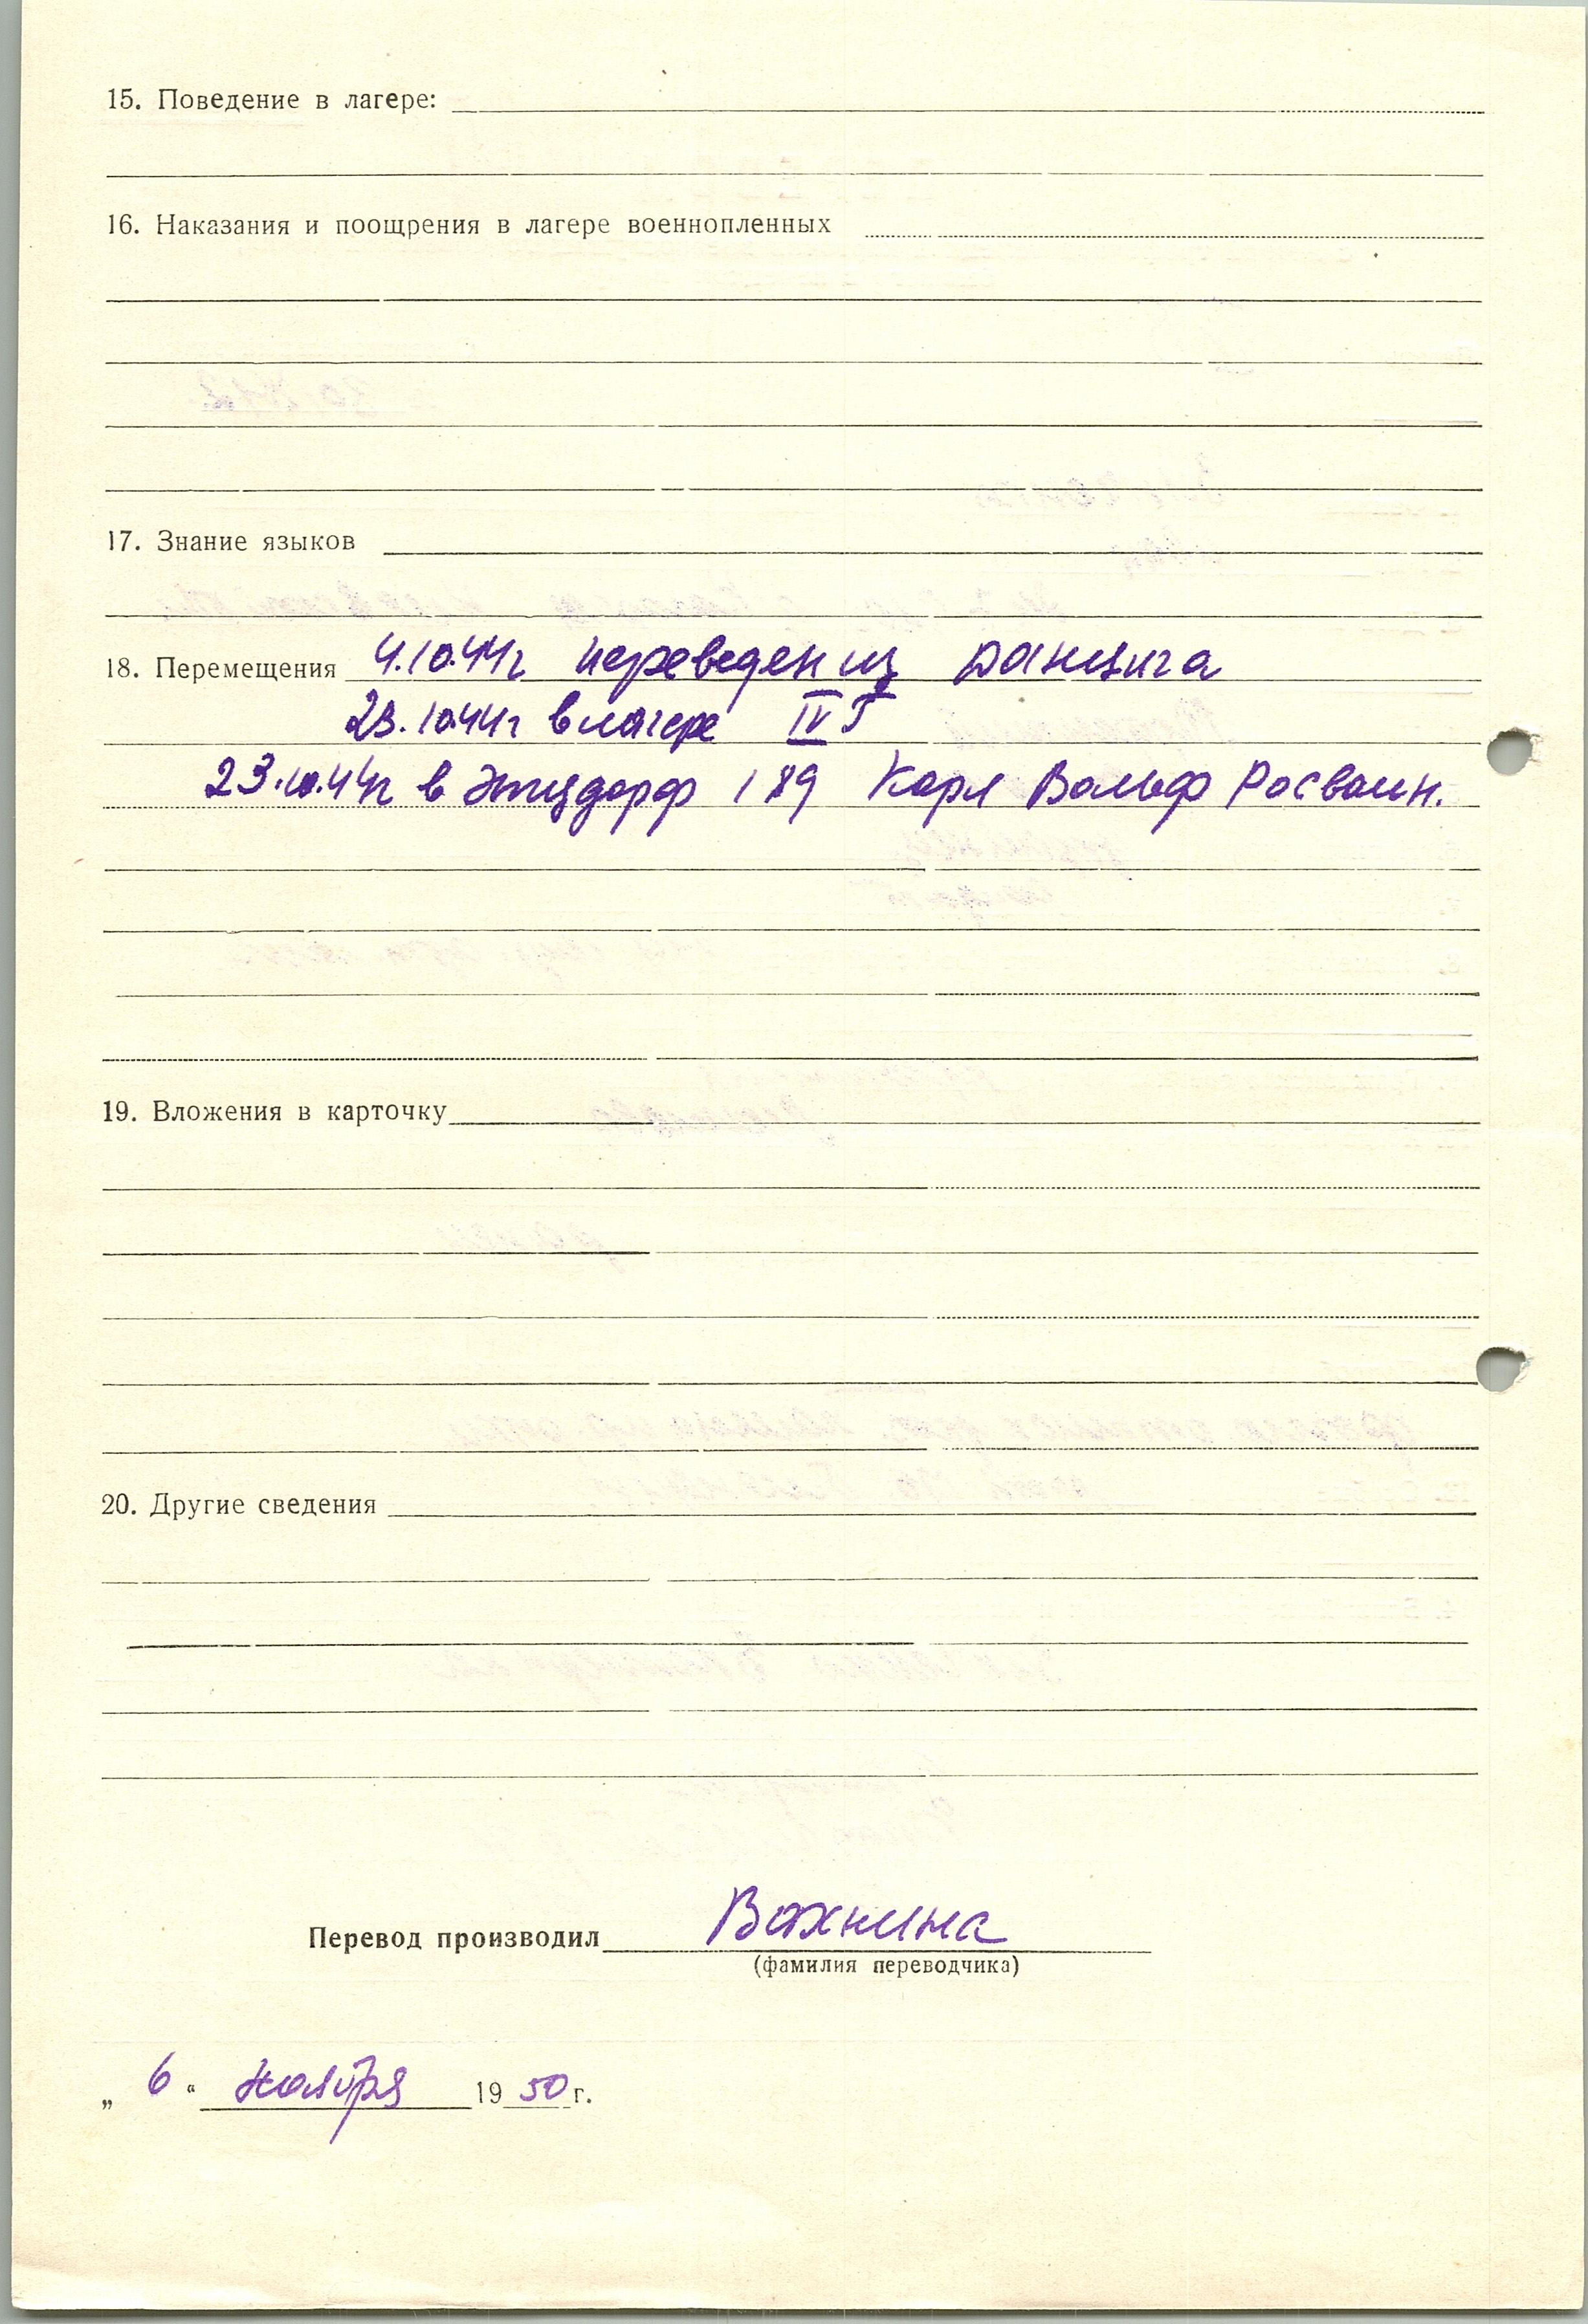 15. Поведение в лагере:
16. Наказания и поощрения в лагере военнопленных
17. Знание языков
18. Перемещения 4.10.44г переведен из Данцига
23.10.44г в лагере IV Г
23.10.44г в Этцдорф 189 Карл Вольф Росваин.
19. Вложения в карточку
20. Другие сведения
Перевод производил Вахнина
(фамилия переводчика)
„ 6 “ ноября 19 50 г.